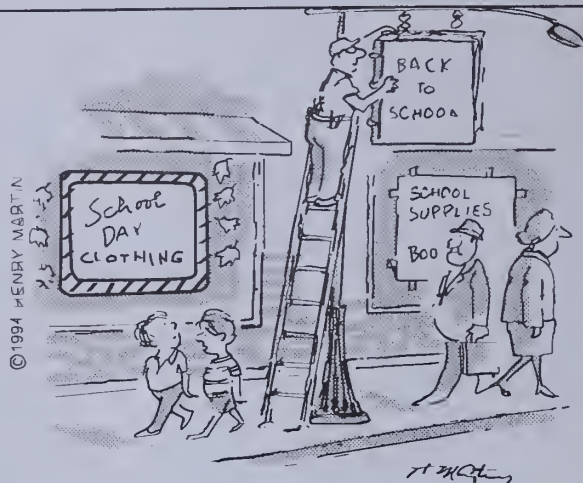 ©1994 HENRY MARTIN
School
DAY
CLOTHING
BACK
TO
SCHOOL
SCHOOL
SUPPLIES
BOO